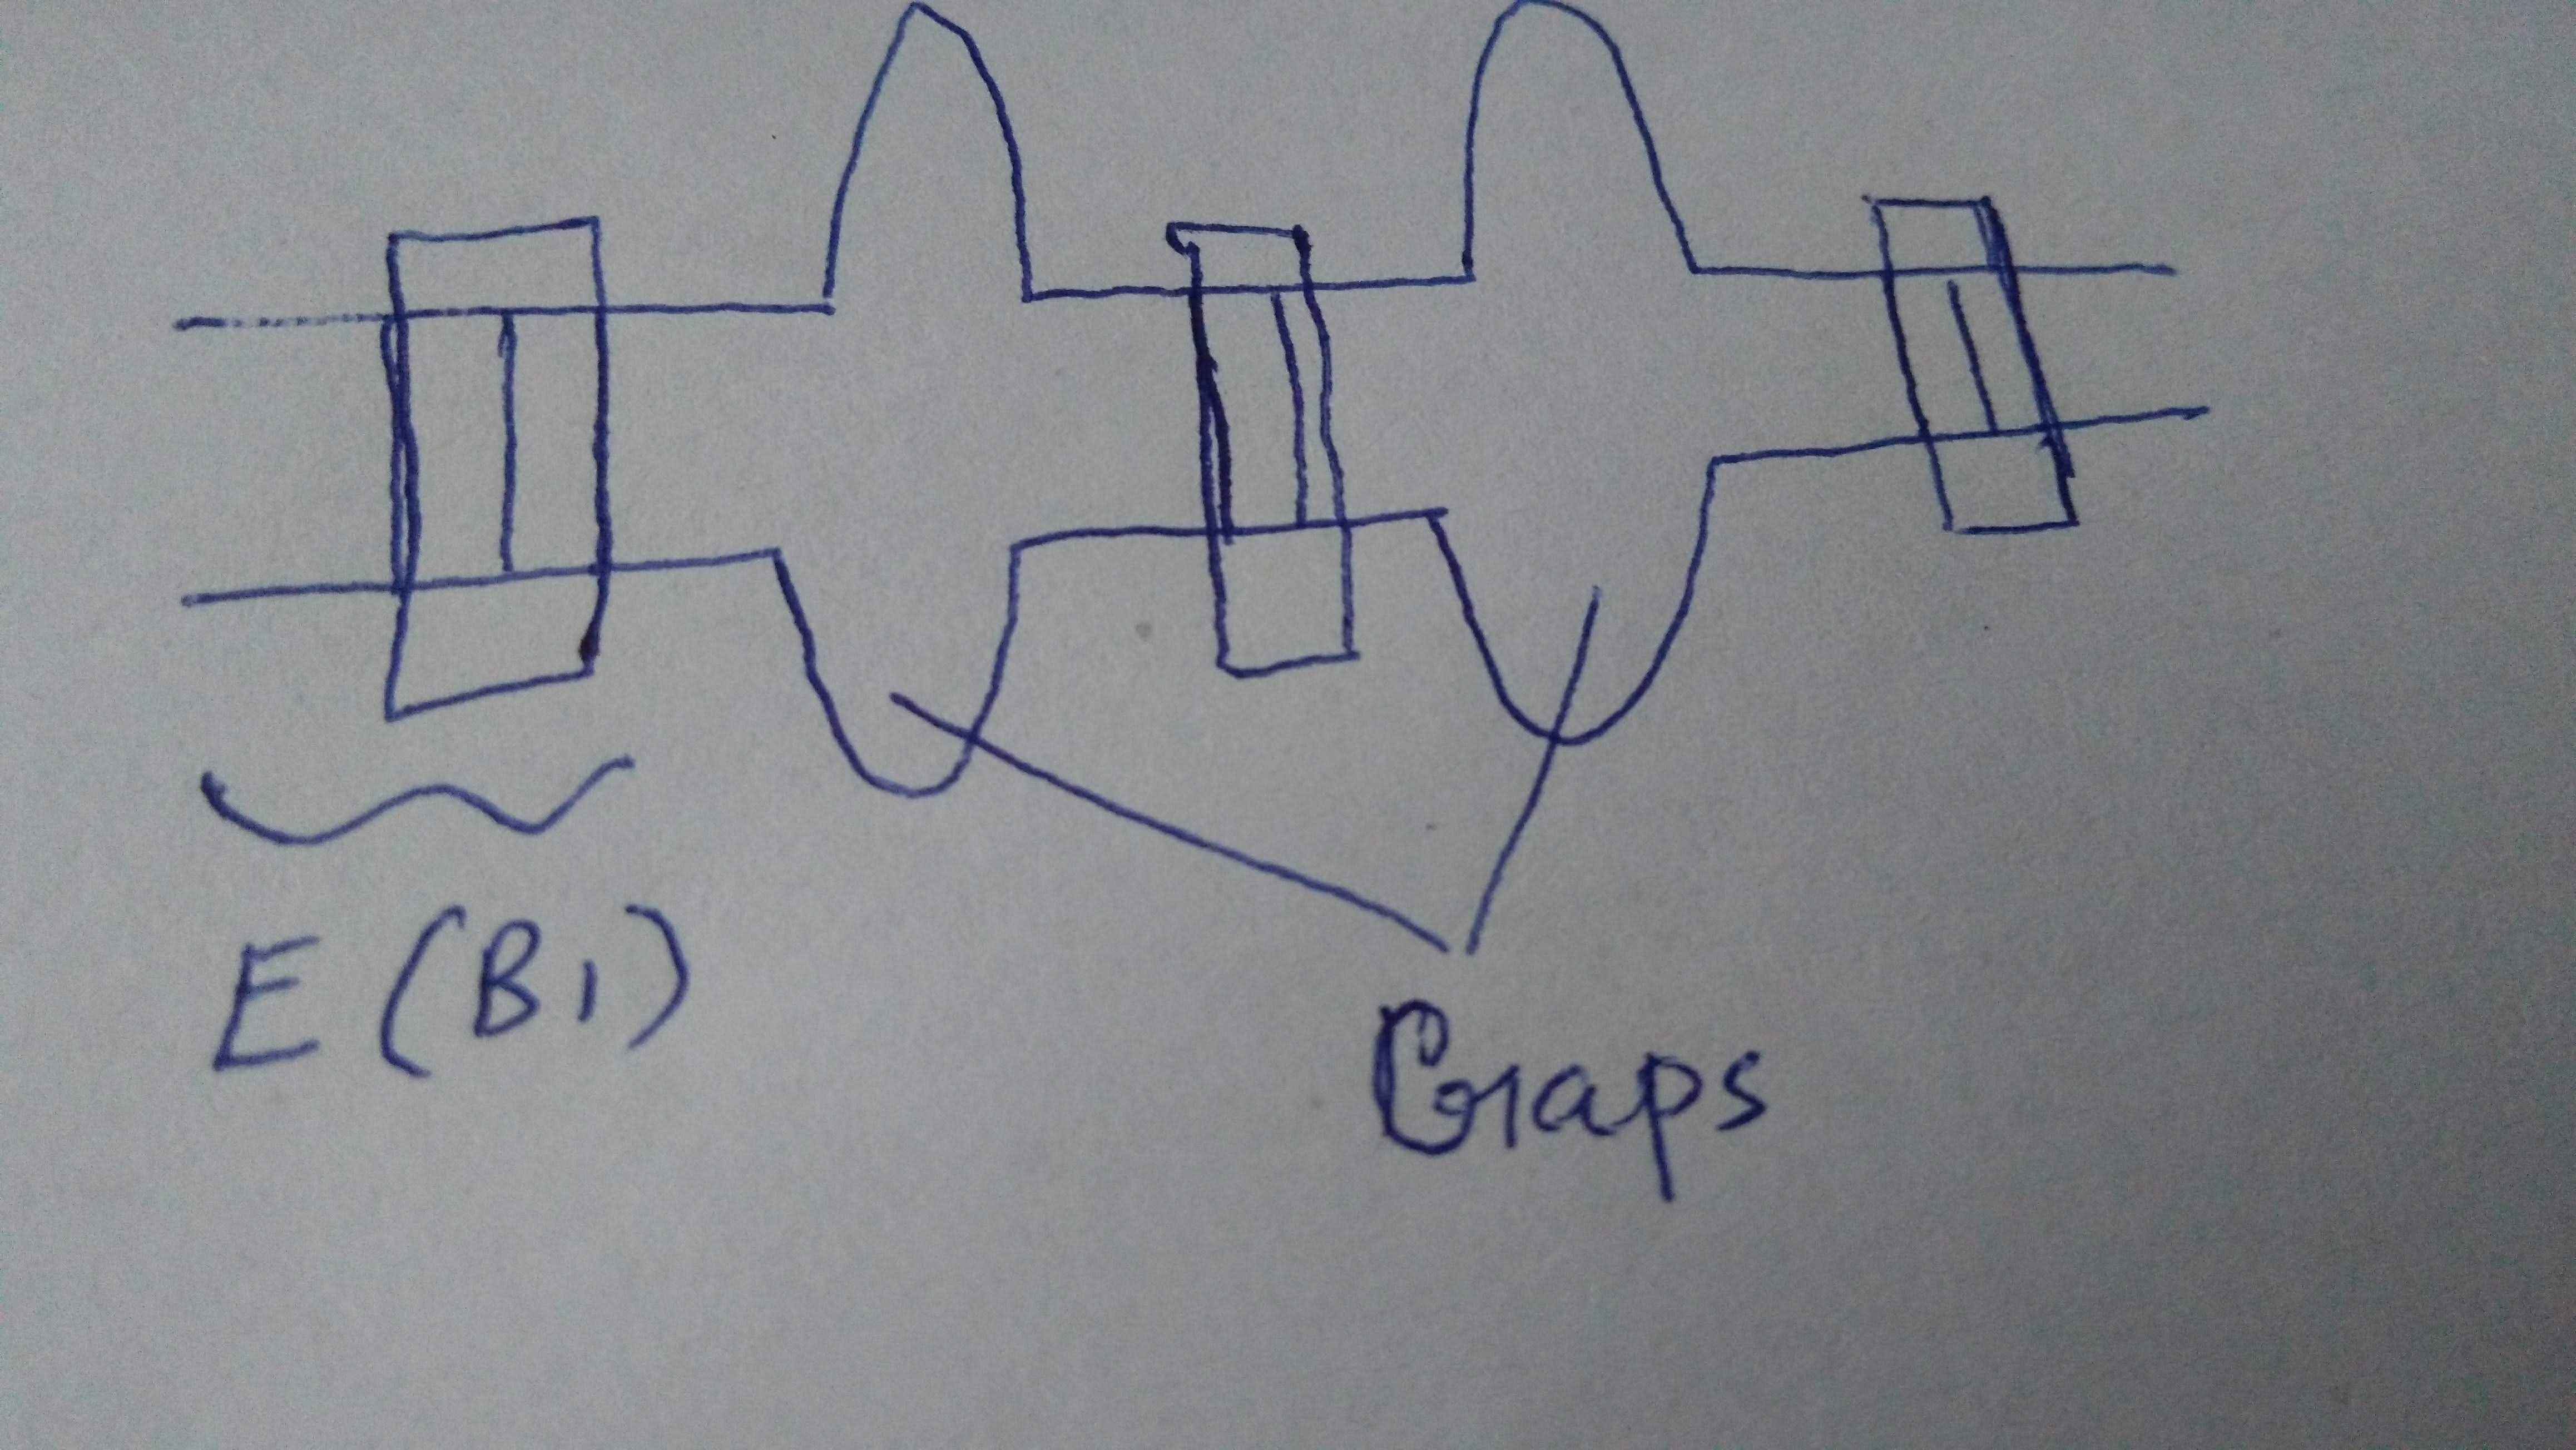 E (B1)
Gaps